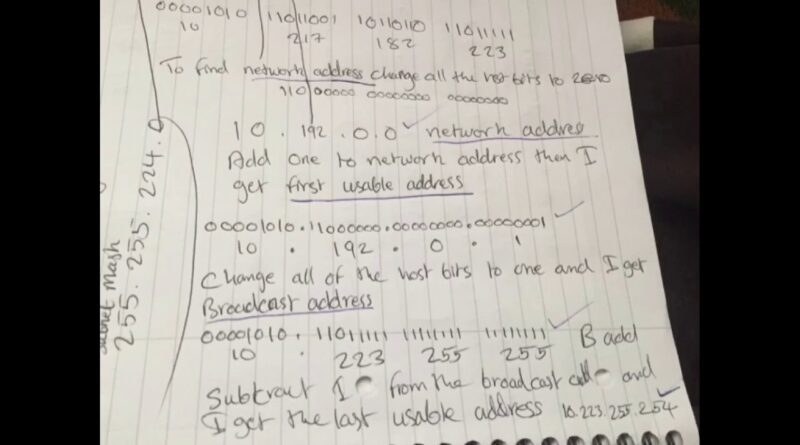 00001010 11011001 10110110 11011111
10 217 182 223
To find network address change all the host bits to zero
11000000 00000000 00000000
10 . 192 . 0 . 0 network addres
Add one to network address then I
get first usable address
00001010 . 11000000 . 00000000 . 00000001
10 . 192 . 0 . 1
Change all of the host bits to one and I get
Broadcast address
00001010 . 11011111 11111111 11111111 B add
10 . 223 255 255
Subtract 1 from the broadcast add and
I get the last usable address 10.223.255.254
Subnet Mask
255.255.224.0